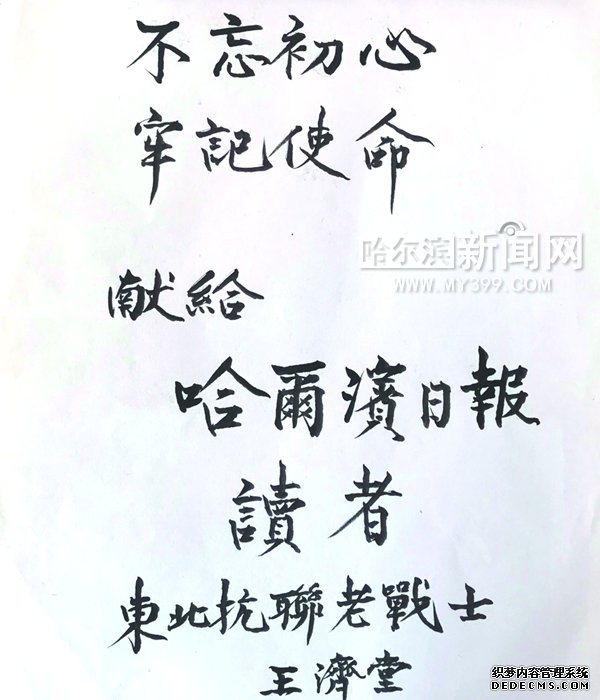 不忘初心
牢記使命
哈尔滨新闻网
WWW.MY399.COM
献給
哈爾濱日報
讀者
東北抗聯老戰士
王濟堂
织梦内容管理系统
DEDECMS.COM